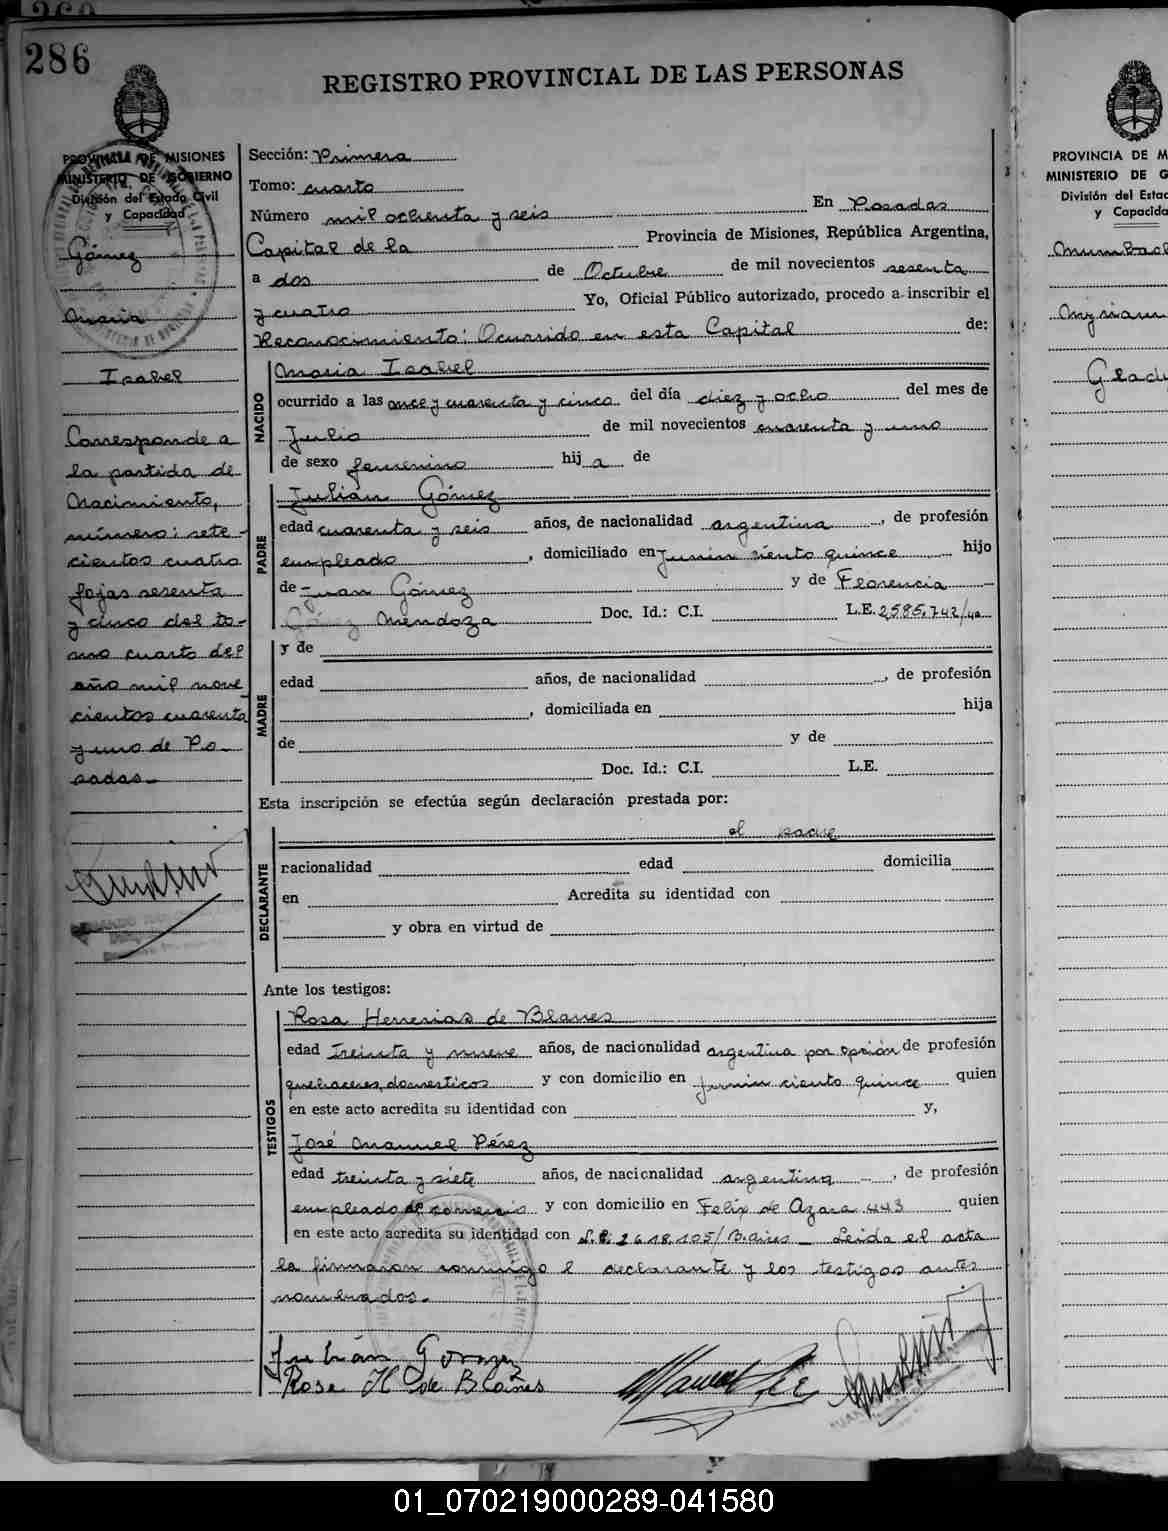 286
REGISTRO PROVINCIAL DE LAS PERSONAS
PROVINCIA DE MISIONES
MINISTERIO DE GOBIERNO
División del Estado Civil
y Capacidad
Gómez
Maria
Isabel
Corresponde a
la partida de
Nacimiento,
número: sete-
cientos cuatro
fojas sesenta
y cinco del to-
mo cuarto del
año mil nove
cientos cuarenta
y uno de Po-
sadas-
Sección: Primera
Tomo: cuarto
Número mil ochenta y seis En Posadas
Capital de la Provincia de Misiones, República Argentina,
a dos de Octubre de mil novecientos sesenta
y cuatro Yo, Oficial Público autorizado, procedo a inscribir el
Reconocimiento: Ocurrido en esta Capital de:
NACIDO
Maria Isabel
ocurrido a las once y cuarenta y cinco del día diez y ocho del mes de
Julio de mil novecientos cuarenta y uno
de sexo femenino hija de
PADRE
Julián Gómez
edad cuarenta y seis años, de nacionalidad argentina, de profesión
empleado, domiciliado en Junin ciento quince hijo
de Juan Gómez y de Florencia
Mendoza Doc. Id.: C.I. L.E. 2585.742/
MADRE
y de
edad años, de nacionalidad , de profesión
, domiciliada en hija
de y de
Doc. Id.: C.I. L.E.
Esta inscripción se efectúa según declaración prestada por:
DECLARANTE
el padre
nacionalidad edad domicilia
en Acredita su identidad con
y obra en virtud de
Ante los testigos:
TESTIGOS
Rosa Herrerias de Blanes
edad treinta y nueve años, de nacionalidad argentina por opción de profesión
quehaceres domesticos y con domicilio en Junin ciento quince quien
en este acto acredita su identidad con y,
José Manuel Pérez
edad treinta y siete años, de nacionalidad argentina, de profesión
empleado de comercio y con domicilio en Felix de Azara 443 quien
en este acto acredita su identidad con L.E. 2618.105/B.aires - Leida el acta
la firmaron conmigo el declarante y los testigos antes
nombrados.-
Julián Gomez
Rosa H de Blanes
PROVINCIA DE M
MINISTERIO DE G
División del Estad
y Capacida
Myriam
Glady
01_070219000289-041580